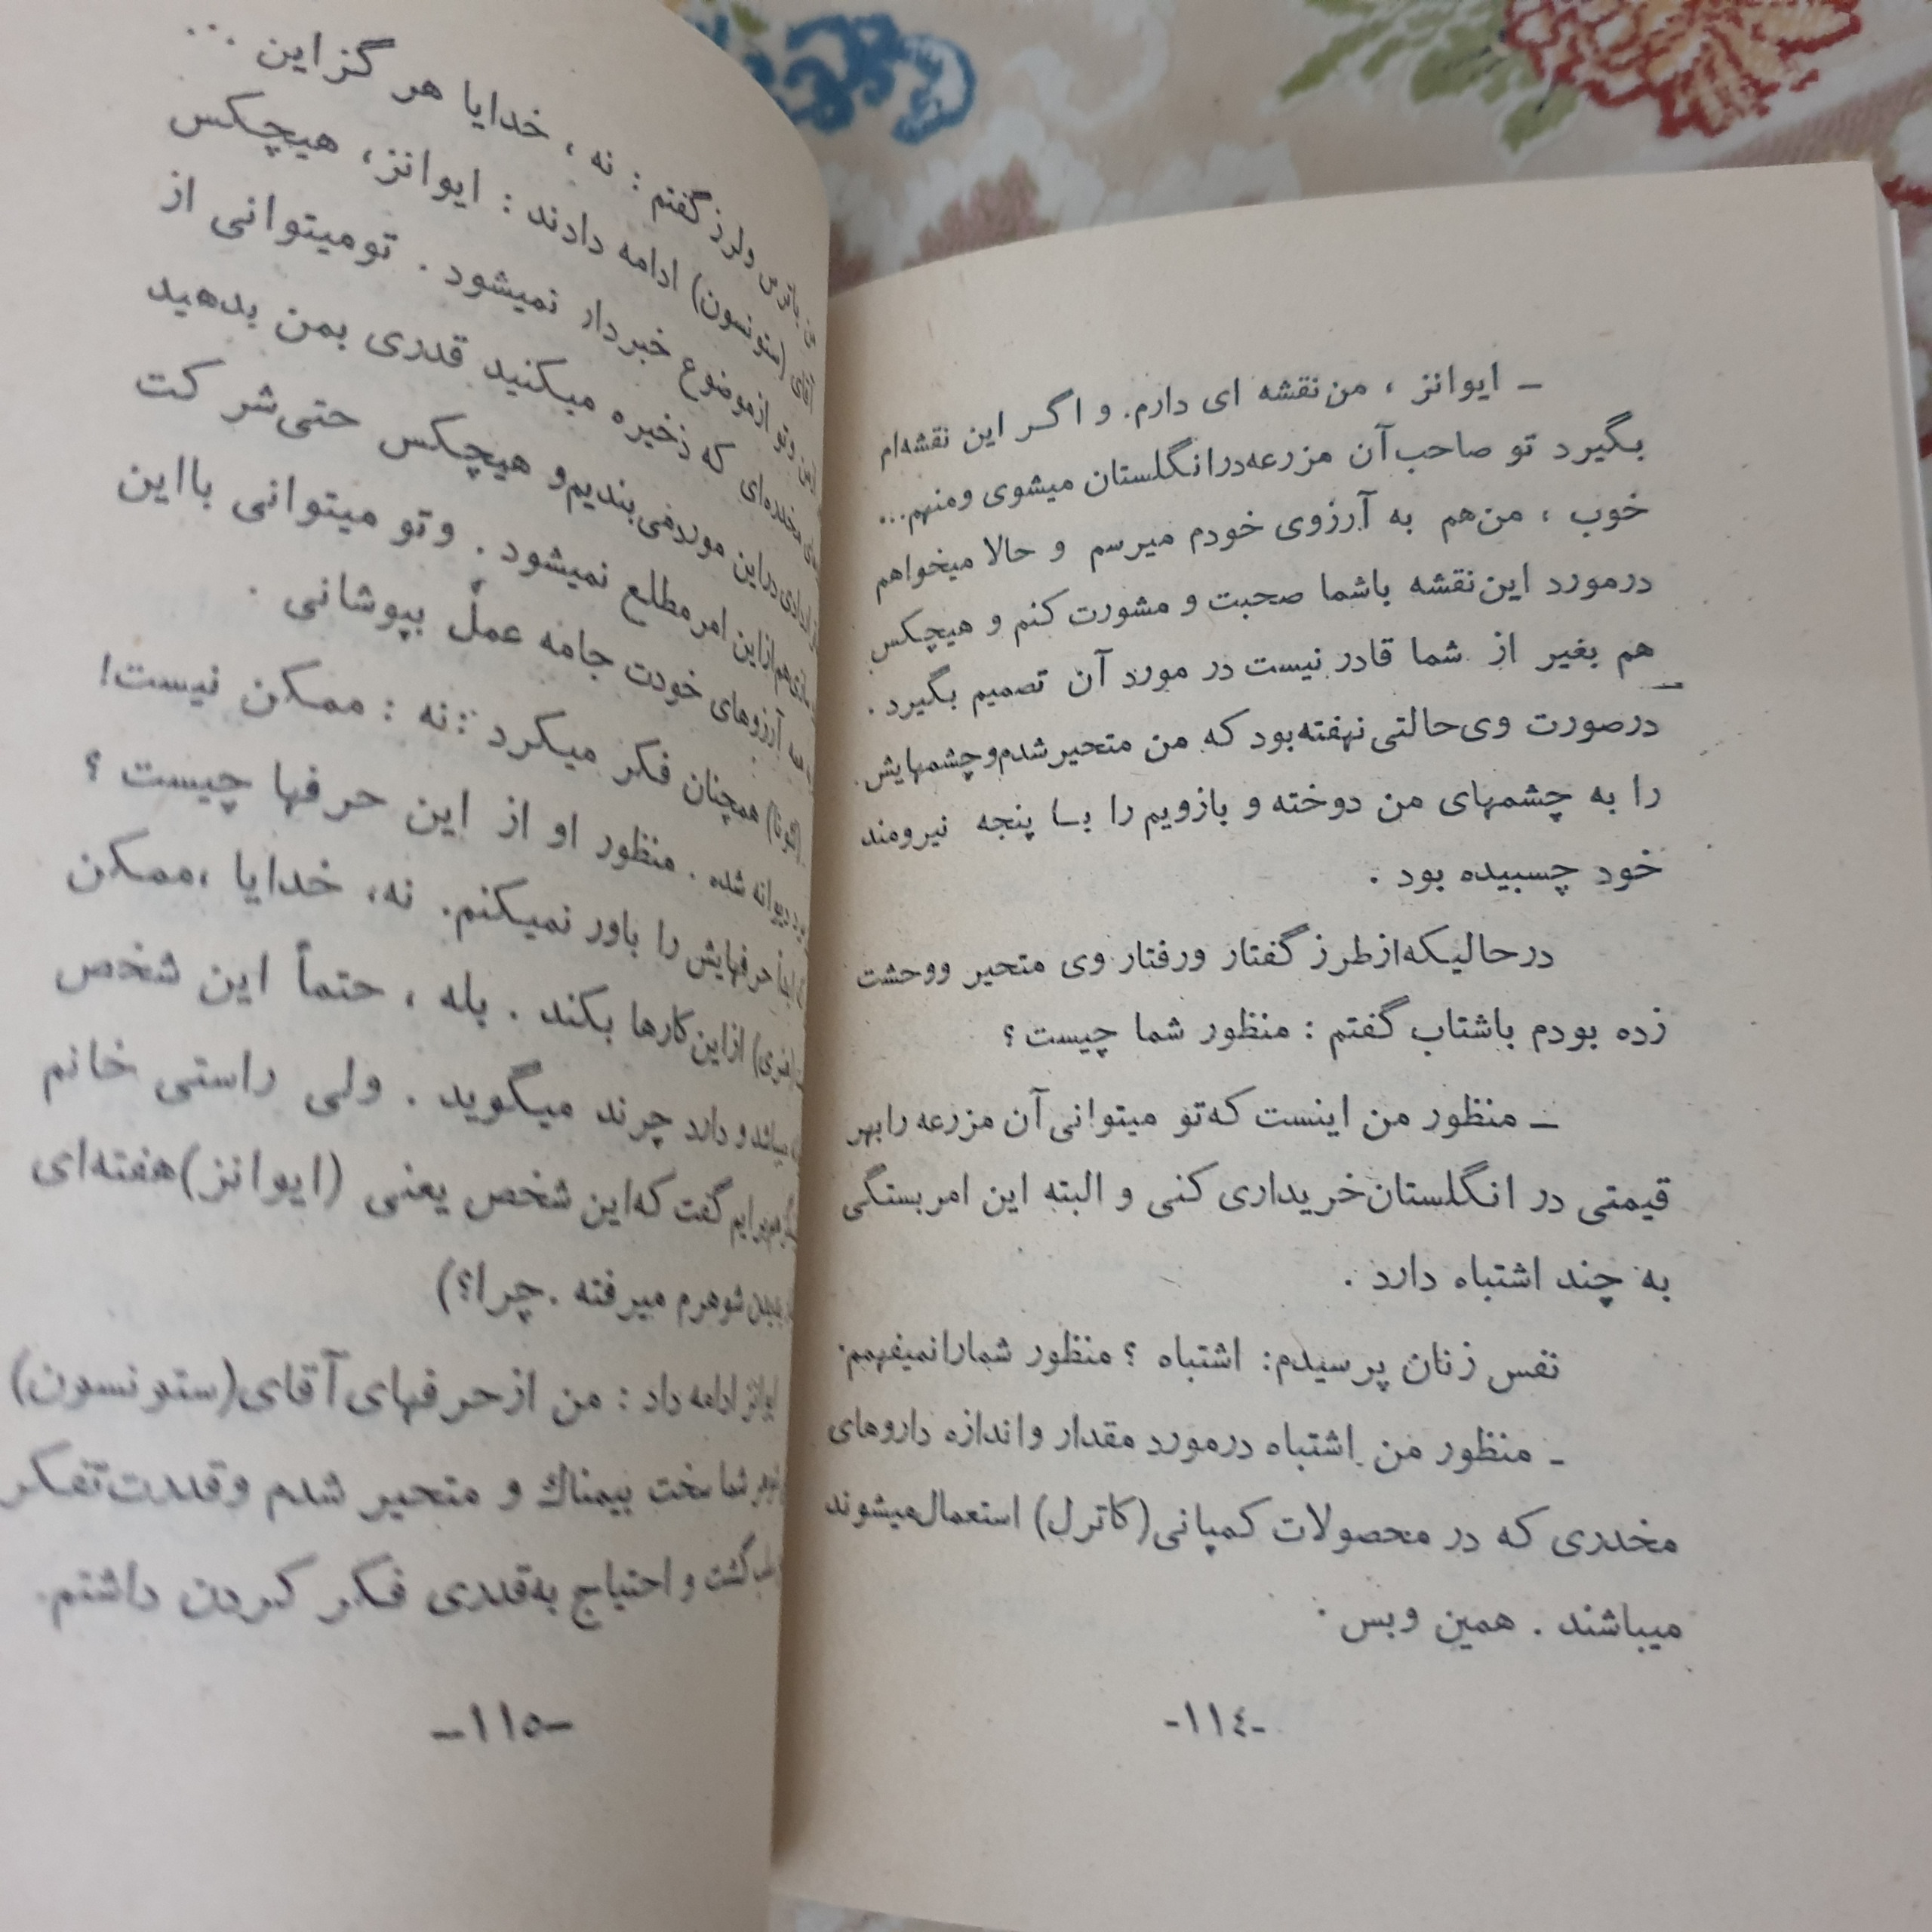 ـ ایوانز ، من نقشه ای دارم. و اگر این نقشه‌ام
بگیرد تو صاحب آن مزرعه درانگلستان میشوی ومنهم...
خوب ، من هم به آرزوی خودم میرسم و حالا میخواهم
درمورد این نقشه باشما صحبت و مشورت کنم و هیچکس
هم بغیر از شما قادر نیست در مورد آن تصمیم بگیرد .
درصورت وی حالتی نهفته بود که من متحیر شدم و چشمهایش
را به چشمهای من دوخته و بازویم را با پنجه نیرومند
خود چسبیده بود .
درحالیکه از طرز گفتار ورفتار وی متحیر ووحشت
زده بودم باشتاب گفتم : منظور شما چیست ؟
ـ منظور من اینست که تو میتوانی آن مزرعه را بهر
قیمتی در انگلستان خریداری کنی و البته این امر بستگی
به چند اشتباه دارد .
نفس زنان پرسیدم: اشتباه ؟ منظور شما را نمیفهمم.
ـ منظور من اشتباه درمورد مقدار و اندازه داروهای
مخدری که در محصولات کمپانی (کاترل) استعمال میشوند
میباشند . همین و بس .
-١١٤-
باترس ولرز گفتم : نه ، خدایا هر گز این ...
آقای (ستونسون) ادامه دادند : ایوانز، هیچکس
وتو ازموضوع خبردار نمیشود . تومیتوانی از
مخدره‌ای که ذخیره میکنید قدری بمن بدهید
دراین مورد می‌بندیم و هیچکس حتی شرکت
هم ازاین امر مطلع نمیشود . وتو میتوانی بااین
آرزوهای خودت جامه عمل بپوشانی .
همچنان فکر میکرد : نه : ممکن نیست!
دیوانه شده . منظور او از این حرفها چیست ؟
حرفهایش را باور نمیکنم. نه، خدایا ،ممکن
ازاین کارها بکند . بله ، حتماً این شخص
میباشد و دارد چرند میگوید . ولی راستی خانم
گفت که این شخص یعنی (ایوانز) هفته‌ای
شوهرم میرفته .چرا؟)
ایوانز ادامه داد : من از حرفهای آقای (ستونسون)
شما سخت بیمناك و متحیر شدم وقدرت تفکر
گشت و احتیاج به قدری فکر کردن داشتم.
-١١٥-